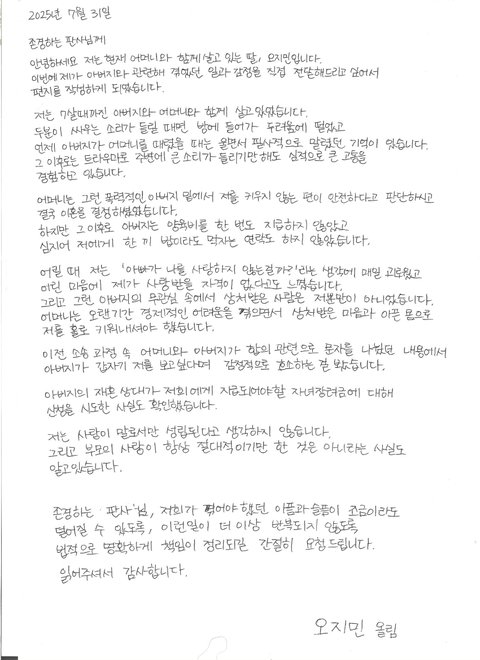 2025년 7월 31일
존경하는 판사님께
안녕하세요 저는 현재 어머니와 함께 살고 있는 딸, 오지민입니다.
이번에 제가 아버지와 관련해 겪었던 일과 감정을 직접 전달해드리고 싶어서
편지를 작성하게 되었습니다.
저는 7살때까진 아버지와 어머니와 함께 살고있었습니다.
두분이 싸우는 소리가 들릴 때면 방에 들어가 두려움에 떨었고
언제 아버지가 어머니를 때렸을 때는 울면서 필사적으로 말렸던 기억이 있습니다.
그 이후로는 트라우마로 주변에 큰 소리가 들리기만해도 심적으로 큰 고통을
경험하고 있습니다.
어머니는 그런 폭력적인 아버지 밑에서 저를 키우지 않는 편이 안전하다고 판단하시고
결국 이혼을 결정하셨었습니다.
하지만 그 이후로 아버지는 양육비를 한 번도 지급하지 않았고
심지어 저에게 한 끼 밥이라도 먹자는 연락도 하지 않았습니다.
어릴 때 저는 '아빠가 나를 사랑하지 않는걸까?'라는 생각에 매일 괴로웠고
어린 마음에 제가 사랑받을 자격이 없다고도 느꼈습니다.
그리고 그런 아버지의 무관심 속에서 상처받은 사람은 저뿐만이 아니었습니다.
어머니는 오랜기간 경제적인 어려움을 겪으면서 상처받은 마음과 아픈 몸으로
저를 홀로 키워내셔야 했습니다.
이전 소송 과정 속 어머니와 아버지가 합의 관련으로 문자를 나눴던 내용에서
아버지가 갑자기 저를 보고싶다며 감정적으로 호소하는 걸 봤습니다.
아버지의 재혼 상대가 저희에게 지급되어야할 자녀장려금에 대해
신청을 시도한 사실도 확인했습니다.
저는 사랑이 말로서만 성립된다고 생각하지 않습니다.
그리고 부모의 사랑이 항상 절대적이기만 한 것은 아니라는 사실도
알고있습니다.
존경하는 판사님, 저희가 겪어야 했던 아픔과 슬픔이 조금이라도
덜어질 수 있도록, 이런일이 더 이상 반복되지 않도록
법적으로 명확하게 책임이 정리되길 간절히 요청드립니다.
읽어주셔서 감사합니다.
오지민 올림